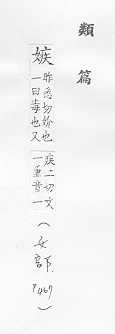 類篇
嫉
昨悉切妎也
一曰毒也又
疾二切文
一重音一
(女部 P467)